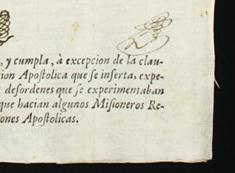 , y cumpla, à excepcion de la clau-
cion Apostolica que se inserta, expe-
desordenes que se experimentaban
que hacian algunos Misioneros Re-
ones Apostolicas.